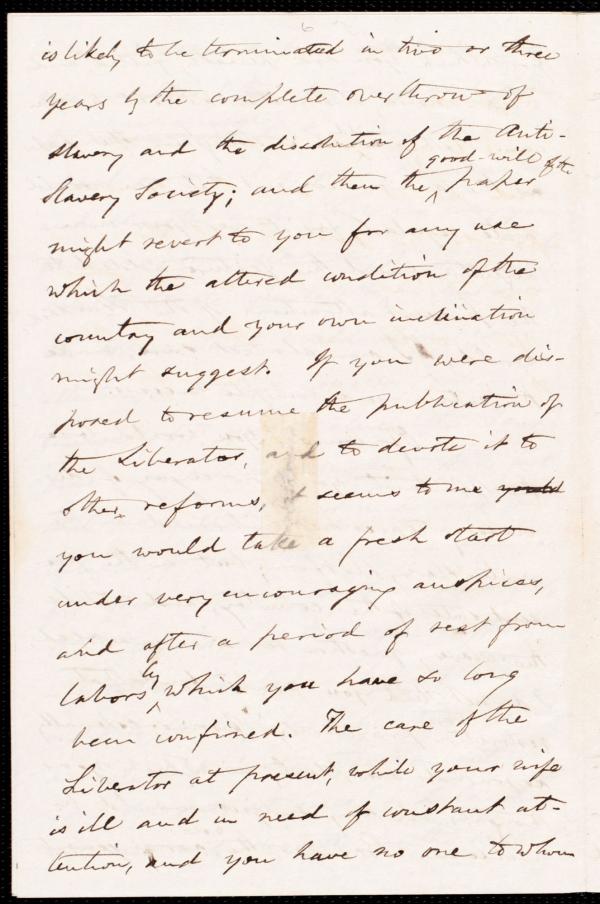 6
is likely to be terminated in two or three
years by the complete overthrow of
slavery and the dissolution of the Anti-
Slavery Society; and then the good-will of the paper
might revert to you for any use
which the altered condition of the
country and your own inclination
might suggest. If you were dis-
posed to resume the publication of
the Liberator, and to devote it to
other reforms, it seems to me would
you would take a fresh start
under very encouraging auspices,
and after a period of rest from
labors by which you have so long
been confined. The care of the
Liberator at present, while your wife
is ill and in need of constant at-
tention, and you have no one to whom